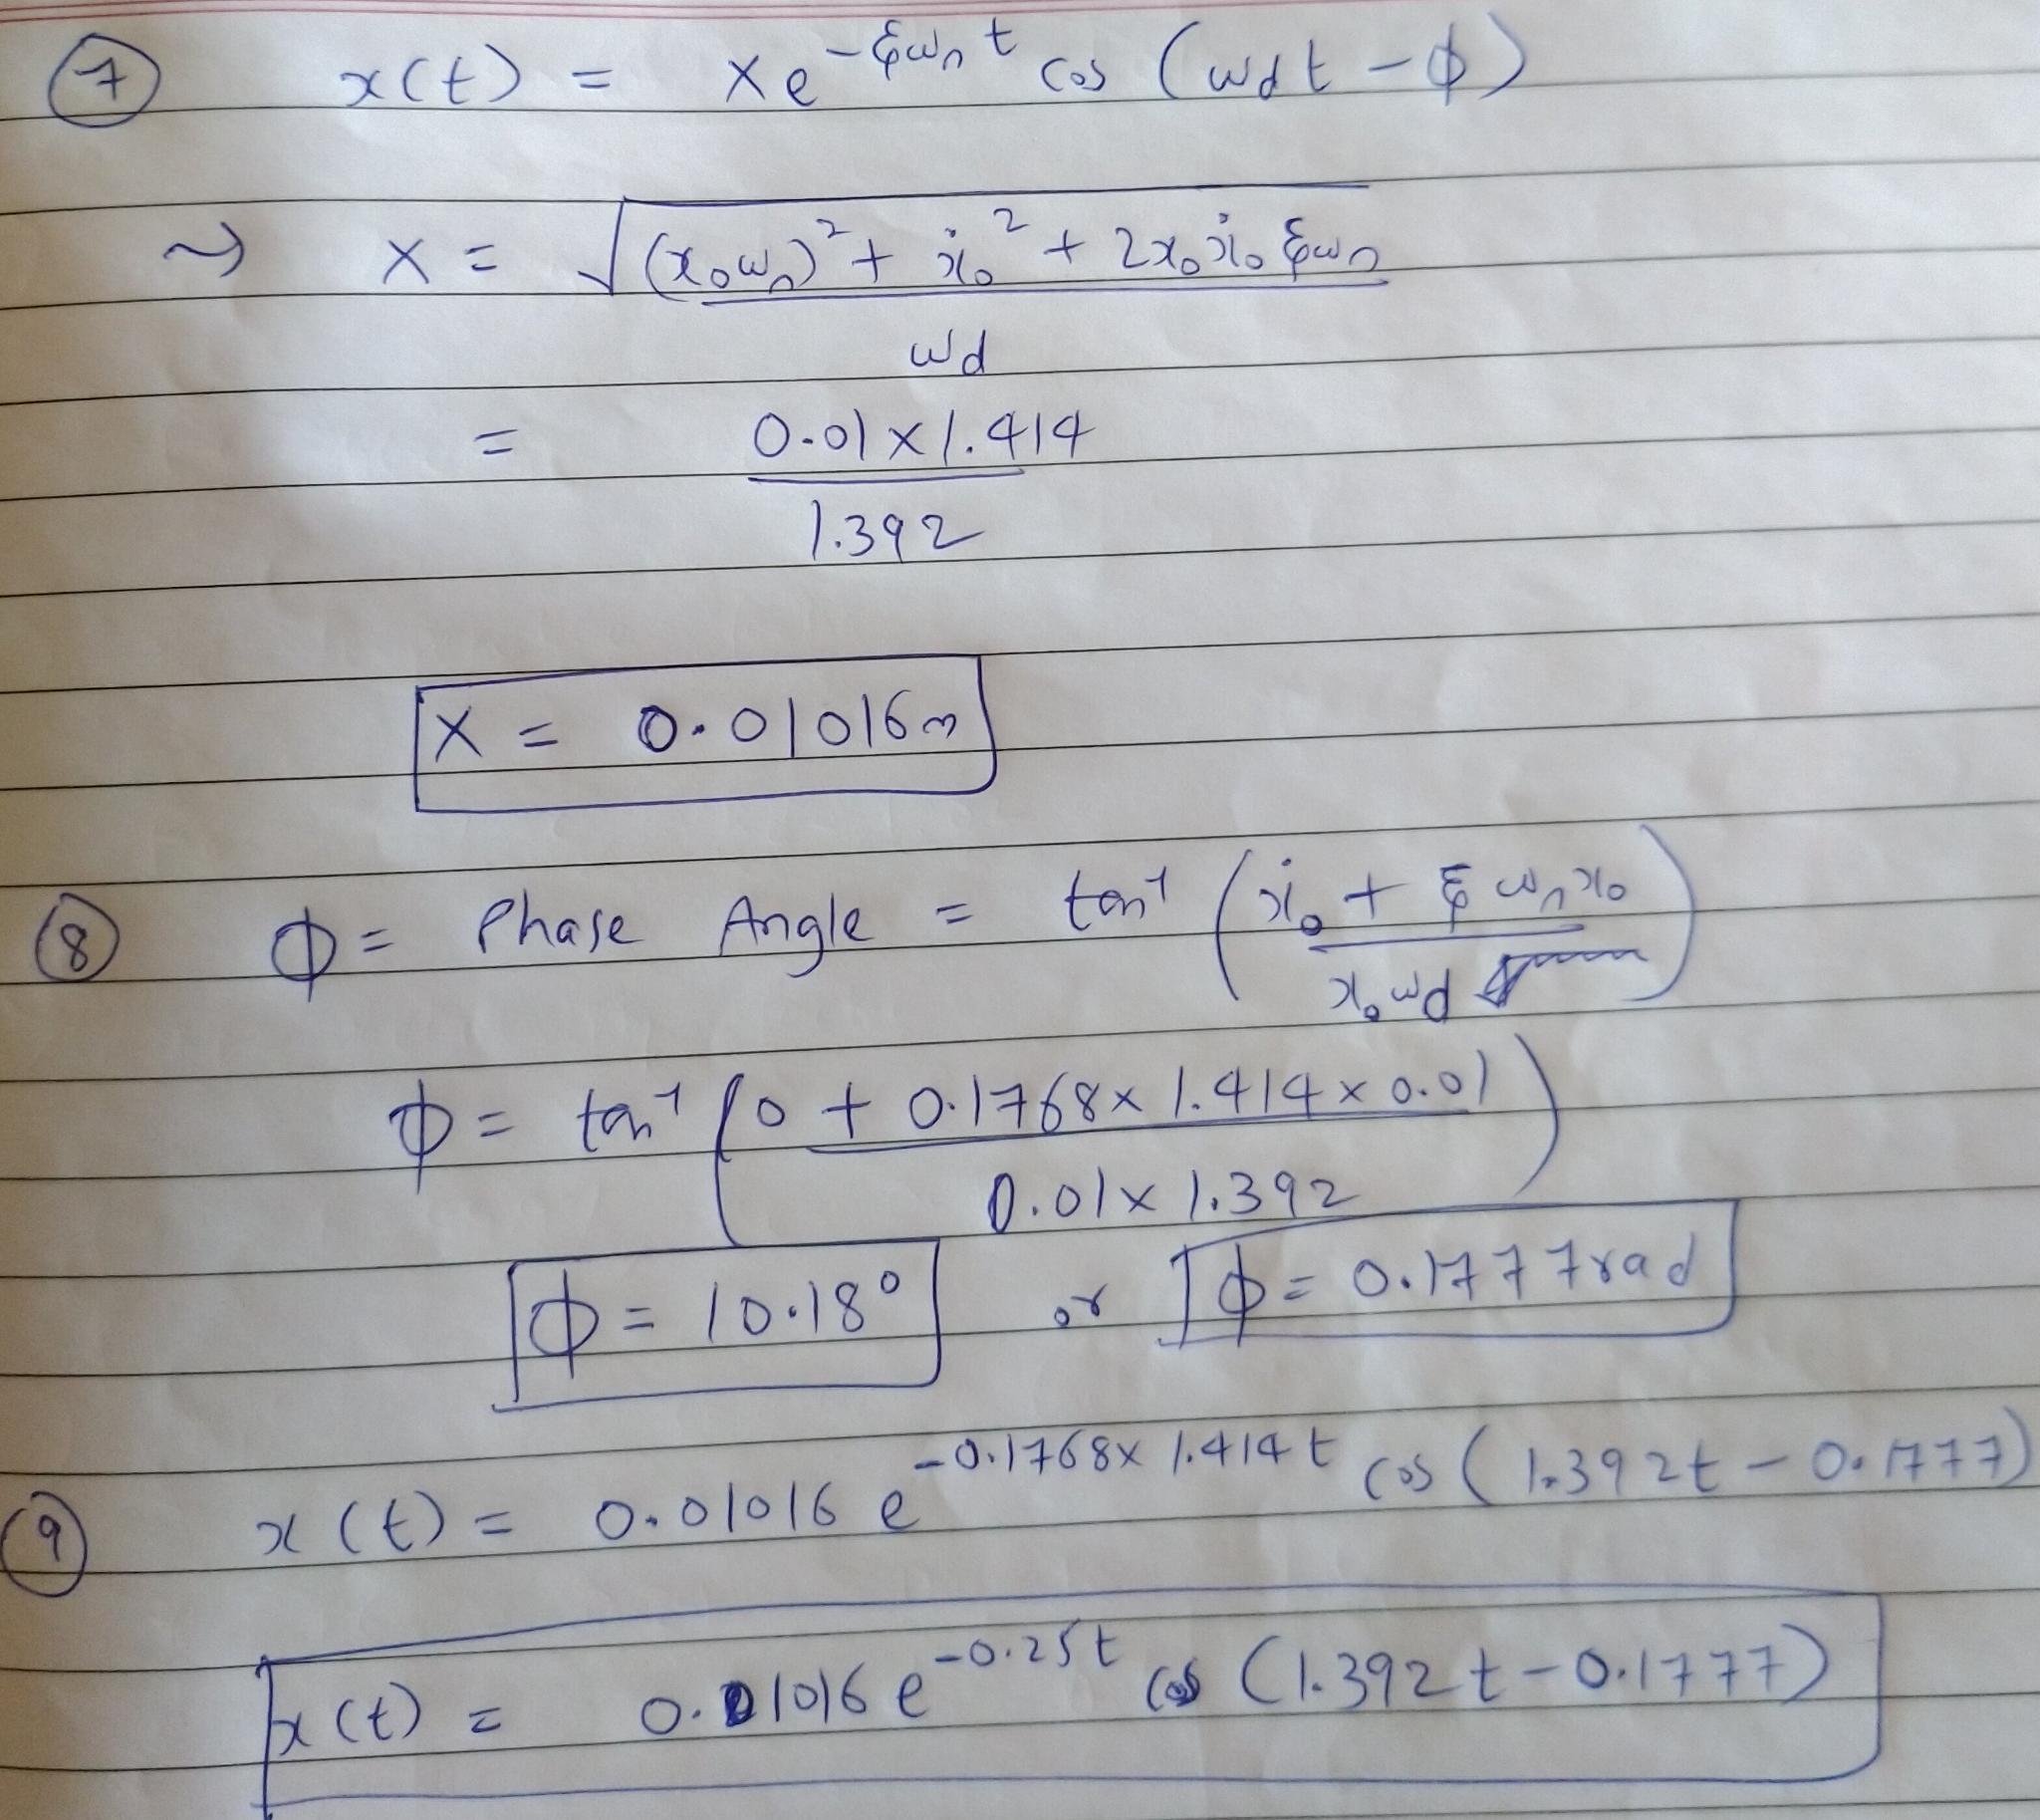 7 x(t) = Xe^(-ξωn t) cos (ωd t - ϕ)
~> X = √((x₀ωn)² + ẋ₀² + 2x₀ẋ₀ξωn)
ωd
= 0.01 x 1.414
1.392
X = 0.01016m
8 ϕ = Phase Angle = tan⁻¹ (ẋ₀ + ξωn x₀
x₀ωd)
ϕ = tan⁻¹ (0 + 0.1768 x 1.414 x 0.01
0.01 x 1.392)
ϕ = 10.18° or ϕ = 0.1777rad
9 x(t) = 0.01016 e^(-0.1768 x 1.414t) cos (1.392t - 0.1777)
x(t) = 0.01016 e^(-0.25t) cos (1.392t - 0.1777)